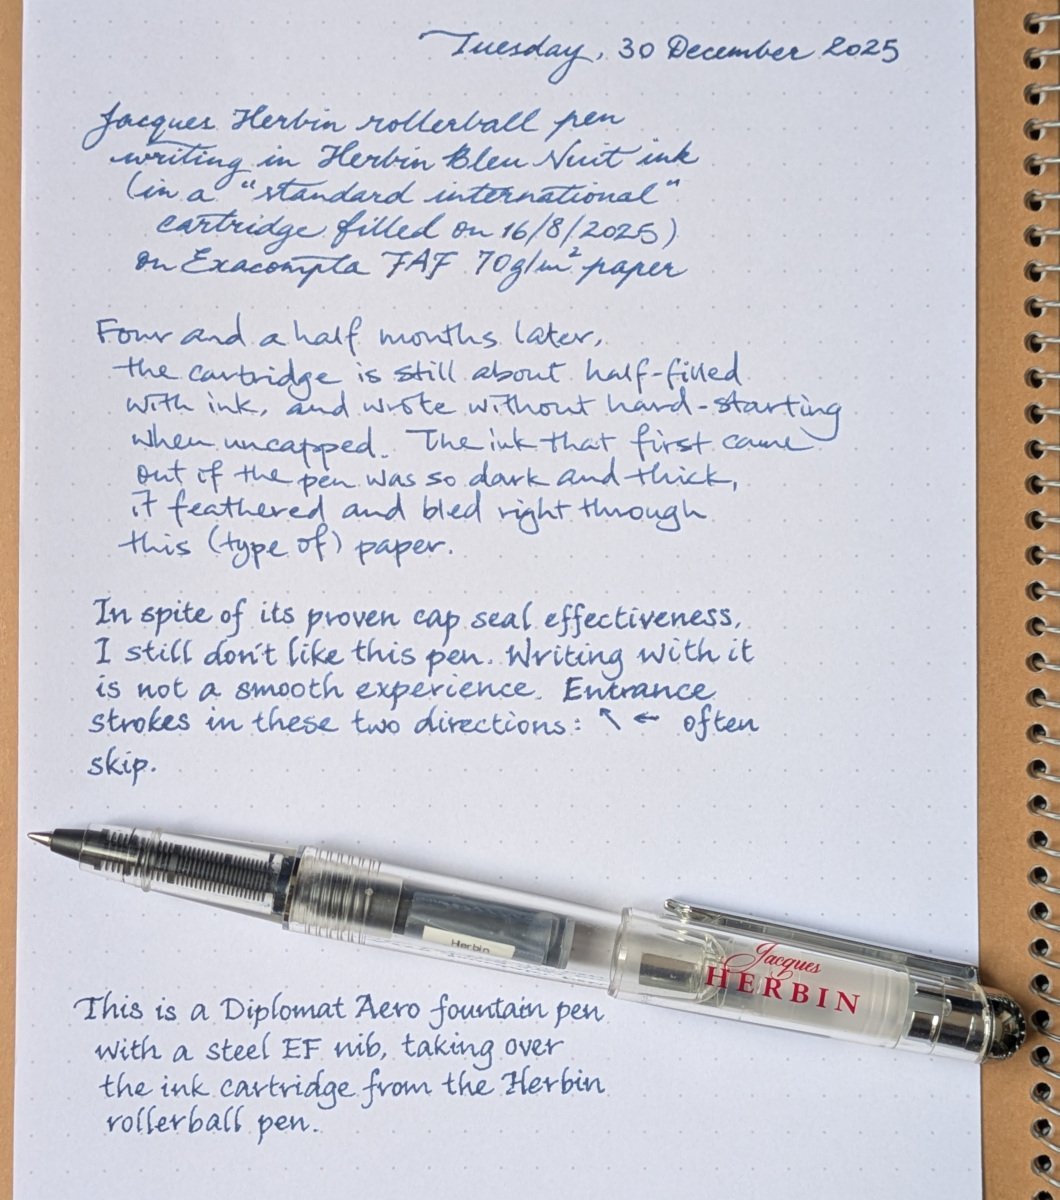 Tuesday, 30 December 2025
Jacques Herbin rollerball pen
writing in Herbin Bleu Nuit ink
(in a "standard international"
cartridge filled on 16/8/2025)
on Exacompta FAF 70g/m² paper
Four and a half months later,
the cartridge is still about half-filled
with ink, and wrote without hard-starting
when uncapped. The ink that first came
out of the pen was so dark and thick,
it feathered and bled right through
this (type of) paper.
In spite of its proven cap seal effectiveness,
I still don't like this pen. Writing with it
is not a smooth experience. Entrance
strokes in these two directions: ↖ ← often
skip.
Herbin
Jacques
HERBIN
This is a Diplomat Aero fountain pen
with a steel EF nib, taking over
the ink cartridge from the Herbin
rollerball pen.